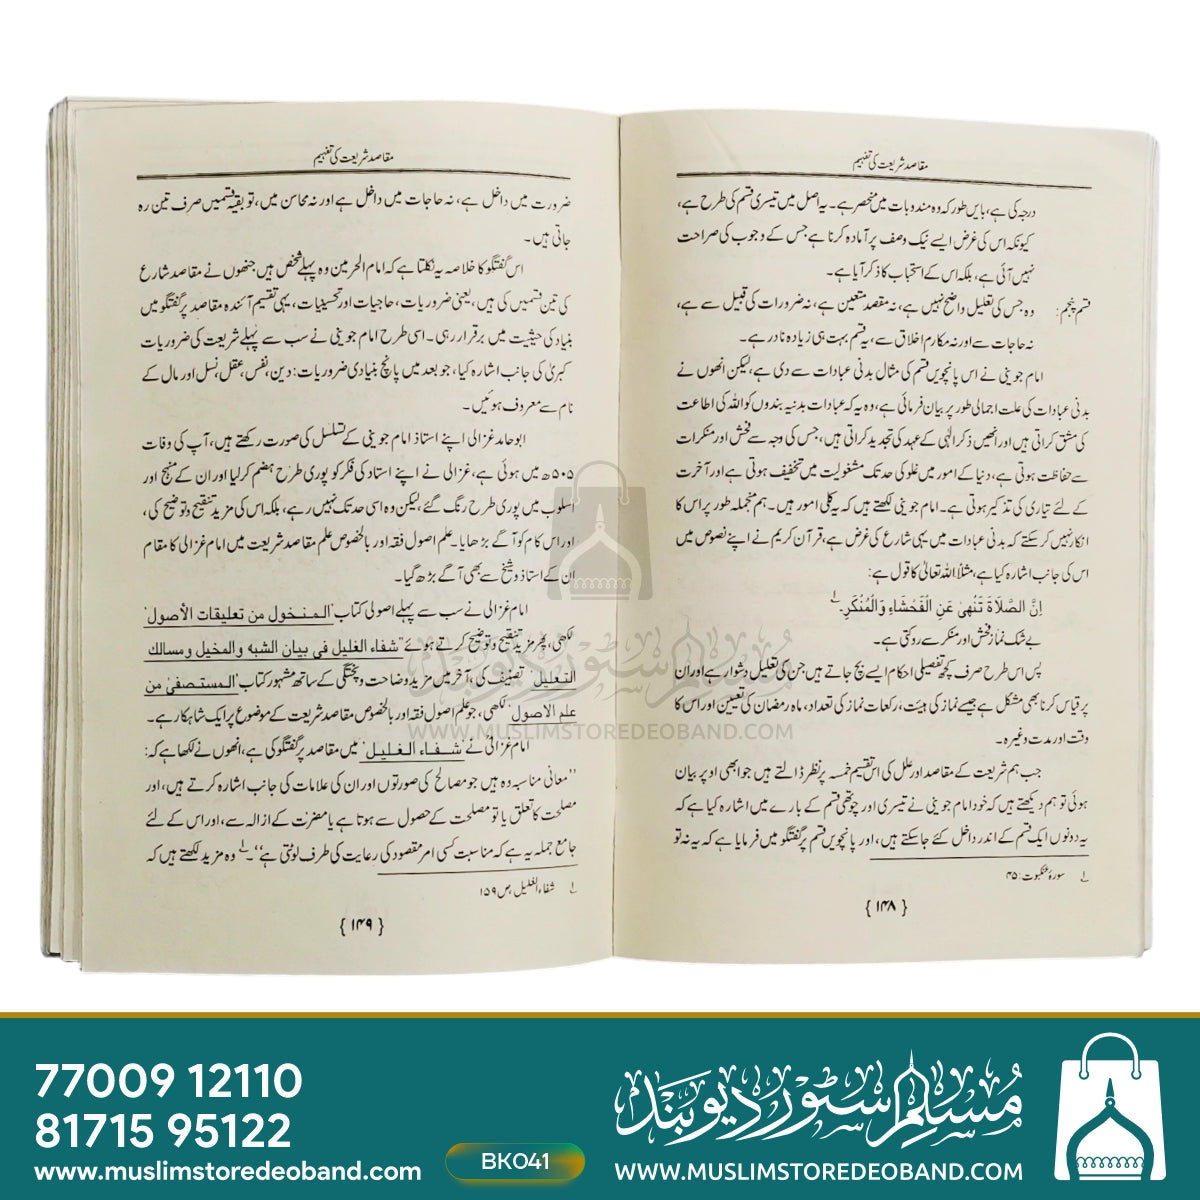 مقاصد شریعت کی تفہیم
درجہ کی ہے، بایں طور کہ وہ مندوبات میں منحصر ہے۔ یہ اصل میں تیسری قسم کی طرح ہے،
کیونکہ اس کی غرض ایسے نیک وصف پر آمادہ کرنا ہے جس کے وجوب کی صراحت
نہیں آئی ہے، بلکہ اس کے استحباب کا ذکر آیا ہے۔
قسم پنجم: وہ جس کی تعلیل واضح نہیں ہے، نہ مقصد متعین ہے، نہ ضرورات کی قبیل سے ہے،
نہ حاجات سے اور نہ مکارم اخلاق سے، یہ قسم بہت ہی زیادہ نادر ہے۔
امام جوینی نے اس پانچویں قسم کی مثال بدنی عبادات سے دی ہے، لیکن انھوں نے
بدنی عبادات کی علت اجمالی طور پر بیان فرمائی ہے، وہ یہ کہ عبادات بدنیہ بندوں کو اللہ کی اطاعت
کی مشق کراتی ہیں اور انھیں ذکر الٰہی کے عہد کی تجدید کراتی ہیں، جس کی وجہ سے فحش اور منکرات
سے حفاظت ہوتی ہے، دنیا کے امور میں غلو کی حد تک مشغولیت میں تخفیف ہوتی ہے اور آخرت
کے لئے تیاری کی تذکیر ہوتی ہے۔ امام جوینی لکھتے ہیں کہ یہ کلی امور ہیں۔ ہم منجملہ طور پر اس کا
انکار نہیں کر سکتے کہ بدنی عبادات میں یہی شارع کی غرض ہے، قرآن کریم نے اپنے نصوص میں
اس کی جانب اشارہ کیا ہے، مثلاً اللہ تعالیٰ کا قول ہے:
اِنَّ الصَّلَاةَ تَنْهىٰ عَنِ الْفَحْشَاءِ وَالْمُنْكَرِ۔ ۱
بے شک نماز فحش اور منکر سے روکتی ہے۔
پس اس طرح صرف کچھ تفصیلی احکام ایسے بچ جاتے ہیں جن کی تعلیل دشوار ہے اور ان
پر قیاس کرنا بھی مشکل ہے جیسے نماز کی ہیئت، رکعات نماز کی تعداد، ماہ رمضان کی تعیین اور اس کا
وقت اور مدت وغیرہ۔
جب ہم شریعت کے مقاصد اور علل کی اس تقسیم خمسہ پر نظر ڈالتے ہیں جو ابھی اوپر بیان
ہوئی تو ہم دیکھتے ہیں کہ خود امام جوینی نے تیسری اور چوتھی قسم کے بارے میں اشارہ کیا ہے کہ
یہ دونوں ایک قسم کے اندر داخل کئے جا سکتے ہیں، اور پانچویں قسم پر گفتگو میں فرمایا ہے کہ یہ نہ تو
۱ سورۂ عنکبوت: ۴۵
{ ۱۴۸ }
مقاصد شریعت کی تفہیم
ضرورت میں داخل ہے، نہ حاجات میں داخل ہے اور نہ محاسن میں، تو بقیہ قسمیں صرف تین رہ
جاتی ہیں۔
اس گفتگو کا خلاصہ یہ نکلتا ہے کہ امام الحرمین وہ پہلے شخص ہیں جنھوں نے مقاصد شارع
کی تین قسمیں کی ہیں، یعنی ضروریات، حاجیات اور تحسینیات، یہی تقسیم آئندہ مقاصد پر گفتگو میں
بنیاد کی حیثیت میں برقرار رہی۔ اسی طرح امام جوینی نے سب سے پہلے شریعت کی ضروریات
کبریٰ کی جانب اشارہ کیا، جو بعد میں پانچ بنیادی ضروریات: دین، نفس، عقل، نسل اور مال کے
نام سے معروف ہوئیں۔
ابو حامد غزالی اپنے استاذ امام جوینی کے تسلسل کی صورت رکھتے ہیں، آپ کی وفات
۵۰۵ھ میں ہوئی ہے، غزالی نے اپنے استاد کی فکر کو پوری طرح ہضم کر لیا اور ان کے منہج اور
اسلوب میں پوری طرح رنگ گئے، لیکن وہ اسی حد تک نہیں رہے، بلکہ اس کی مزید تنقیح و توضیح کی،
اور اس کام کو آگے بڑھایا۔ علم اصول فقہ اور بالخصوص علم مقاصد شریعت میں امام غزالی کا مقام
ان کے استاذ و شیخ سے بھی آگے بڑھ گیا۔
امام غزالی نے سب سے پہلے اصولی کتاب "المنخول من تعلیقات الأصول"
لکھی، پھر مزید تنقیح و توضیح کرتے ہوئے "شفاء الغلیل فی بیان الشبه والمخیل ومسالك
التعلیل" تصنیف کی، آخر میں مزید وضاحت و پختگی کے ساتھ مشہور کتاب "المستصفیٰ من
علم الاصول" لکھی، جو علم اصول فقہ اور بالخصوص مقاصد شریعت کے موضوع پر ایک شاہکار ہے۔
امام غزالی نے "شفاء الغلیل" میں مقاصد پر گفتگو کی ہے، انھوں نے لکھا ہے کہ:
"معانی مناسبہ وہ ہیں جو مصالح کی صورتوں اور ان کی علامات کی جانب اشارہ کرتے ہیں، اور
مصلحت کا تعلق یا تو مصلحت کے حصول سے ہوتا ہے یا مضرت کے ازالہ سے، اور اس کے لئے
جامع جملہ یہ ہے کہ مناسبت کسی امر مقصود کی رعایت کی طرف لوٹتی ہے"۔ ۱ وہ مزید لکھتے ہیں کہ
۱ شفاء الغلیل، ص ۱۵۹
{ ۱۴۹ }
مسلم سٹور دیوبند
WWW.MUSLIMSTOREDEOBAND.COM
77009 12110
81715 95122
www.muslimstoredeoband.com
BK041
مسلم سٹور دیوبند
WWW.MUSLIMSTOREDEOBAND.COM